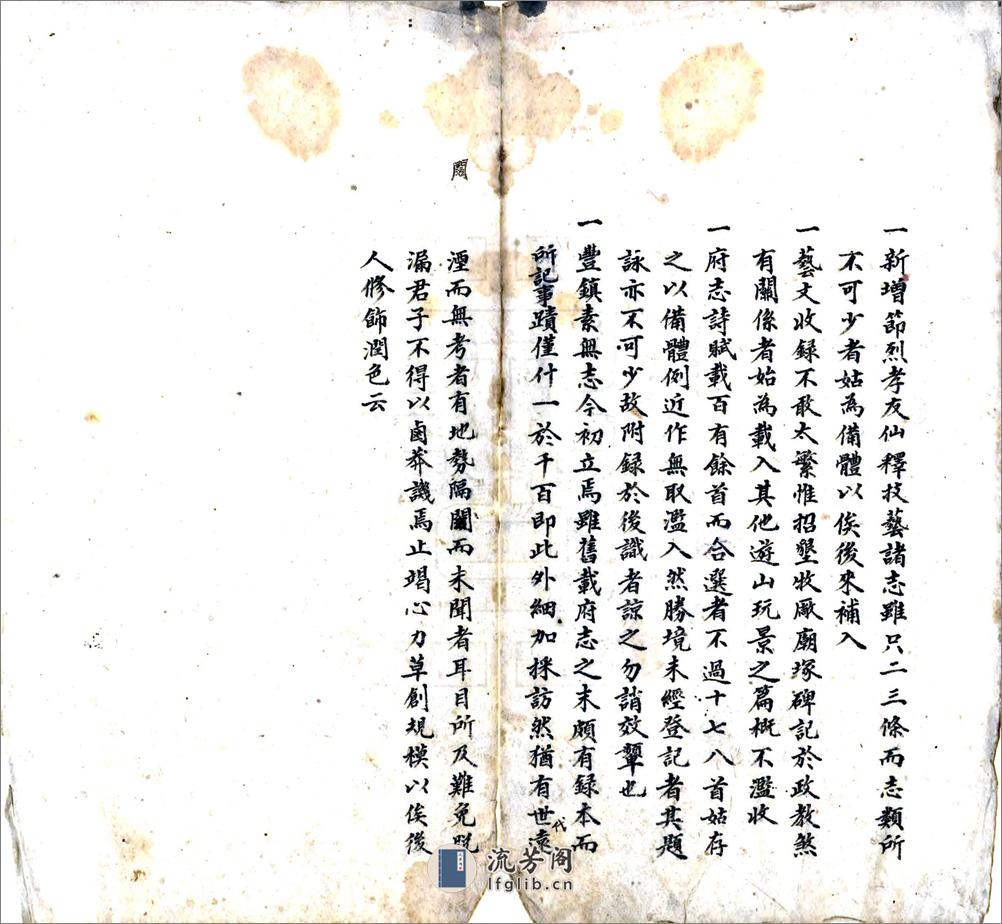 一新增節烈孝友仙釋技藝諸志雖只二三條而志類所
不可少者姑為備體以俟後來補入
一藝文收録不敢太繁惟招墾牧厰廟塚碑記於政教煞
有關係者始為載入其他遊山玩景之篇概不濫收
一府志詩賦載百有餘首而合選者不過十七八首姑存
之以備體例近作無取濫入然勝境未經登記者其題
詠亦不可少故附録於後識者諒之勿誚效顰也
一豐鎮素無志今初立焉雖舊載府志之末頗有録本而
所記事蹟僅什一於千百即此外細加採訪然猶有世遠
代
湮而無考者有地勢隔閡而未聞者耳目所及難免脫
漏君子不得以鹵莽譏焉止竭心力草創規模以俟後
人修飾潤色云
流芳阁
lfglib.cn